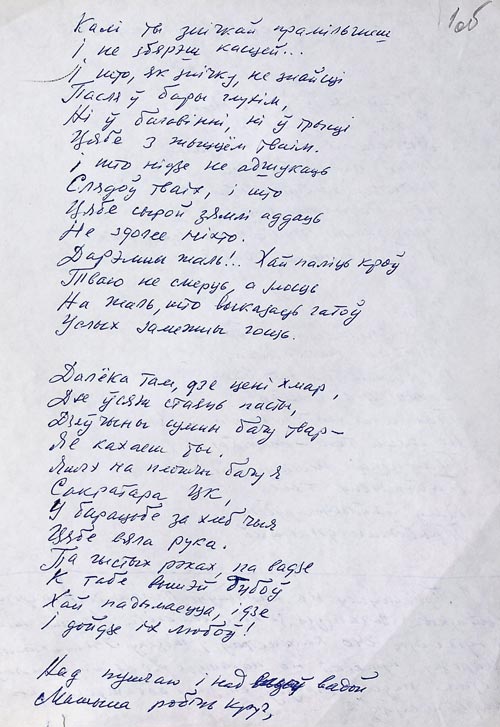 1об
Калі ты знічкай прамільгнеш
І не збярэш касцей...
І што, як знічку, не знайсці
Пасля ў бары глухім,
Ні ў багавінні, ні ў трысці
Цябе з жыццём тваім.
І што нідзе не адшукаць
Слядоў тваіх, і што
Цябе сырой зямлі аддаць
Не здолее ніхто.
Дарэмны жаль!.. Хай паліць кроў
Тваю не смерць, а
На жаль, што выказаць гатоў
Услых замежны госць.

Далёка там, дзе цені хмар,
Дзе ўсяж стаяць пасты,
Дзяўчыны бачу твар –
Яе кахаеш ты.
Яшчэ на плошчы бачу я
Сакратара ЦК,
У барацьбе за хлеб чыя
Цябе вяла рука.
Па чыстых рэках, па вадзе
К табе вышэй бубоў
Хай падымаецца, ідзе
І дойдзе іх любоў!

Над пушчаю і над вадой
Машына робіць круг,